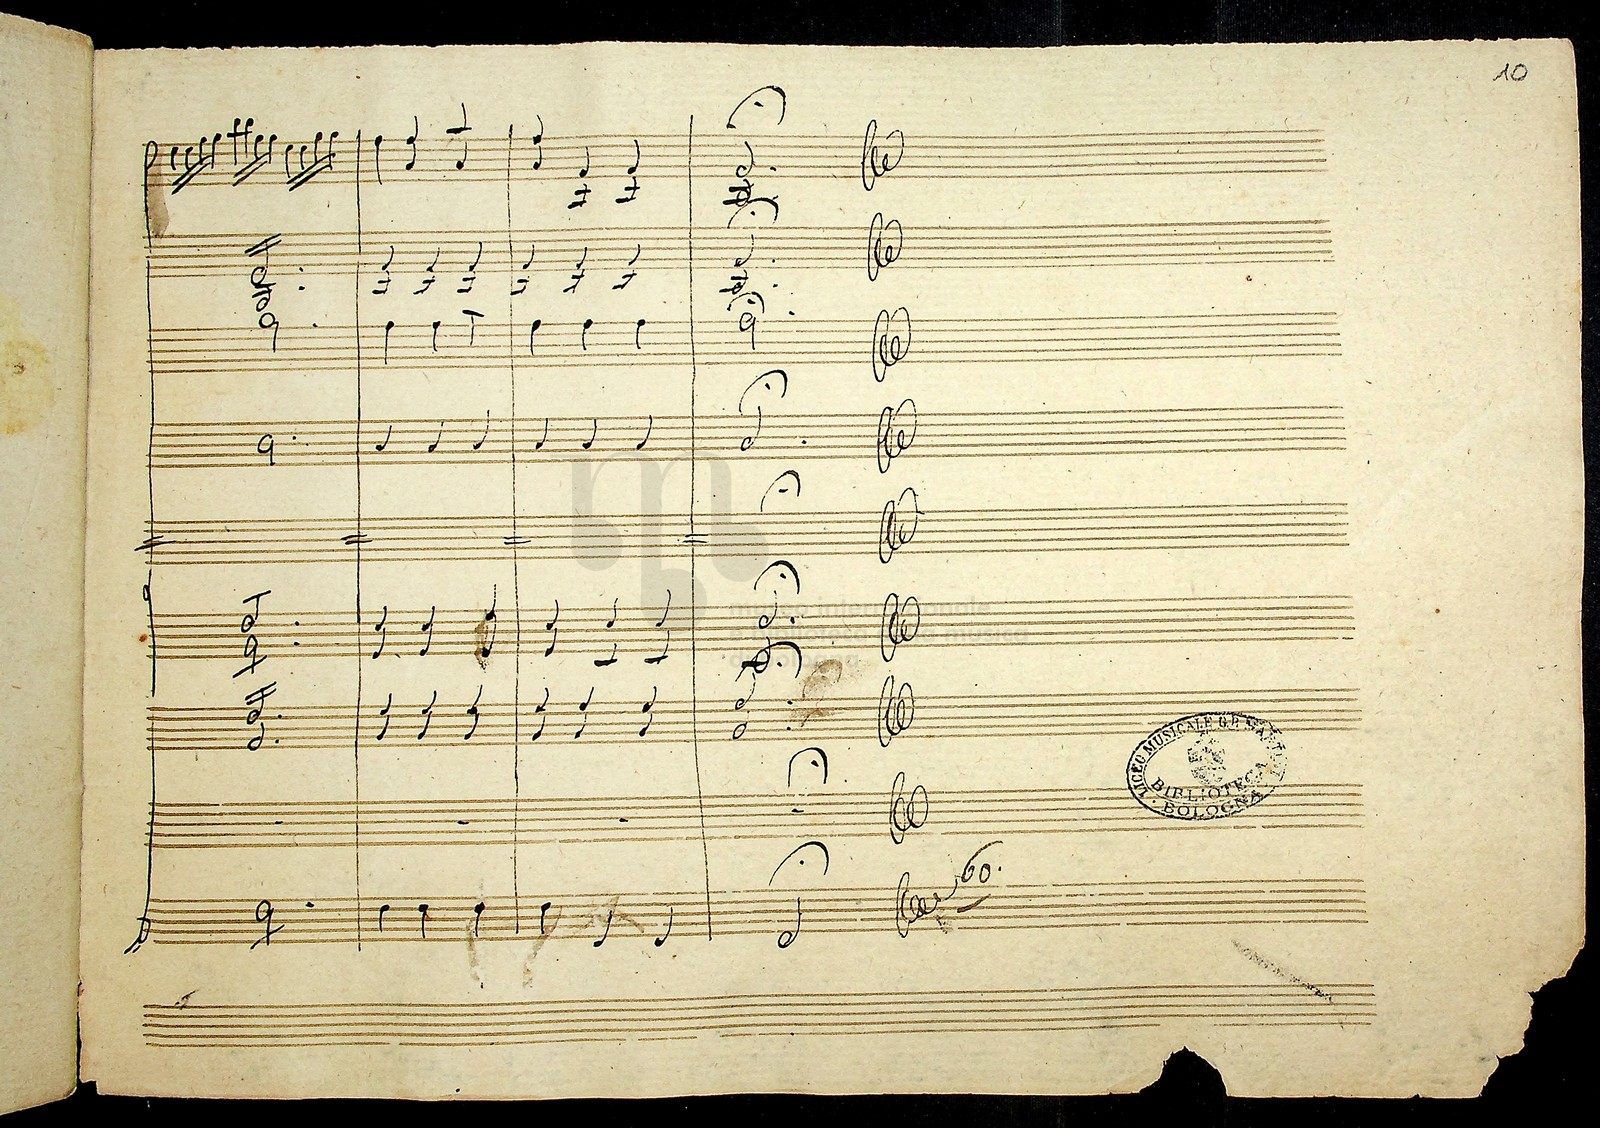 10
museo internazionale
biblioteca della musica
di bologna
LICEO MUSICALE G.B. MARTINI
BIBLIOTECA
BOLOGNA
60.